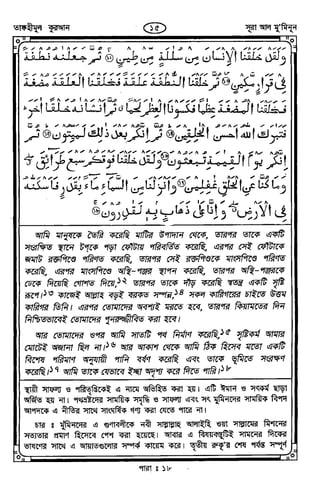 তাফহীমুল কুরআন ১৫ সূরা আল মু'মিনূন
وَلَقَدْ خَلَقْنَا الْإِنْسَانَ مِنْ سُلٰلَةٍ مِّنْ طِينٍ ۝ ثُمَّ جَعَلْنٰهُ نُطْفَةً
فِي قَرَارٍ مَّكِينٍ ۝ ثُمَّ خَلَقْنَا النُّطْفَةَ عَلَقَةً فَخَلَقْنَا الْعَلَقَةَ مُضْغَةً
فَخَلَقْنَا الْمُضْغَةَ عِظٰمًا فَكَسَوْنَا الْعِظٰمَ لَحْمًا ثُمَّ أَنْشَأْنٰهُ خَلْقًا اٰخَرَ
فَتَبٰرَكَ اللهُ أَحْسَنُ الْخٰلِقِينَ ۝ ثُمَّ إِنَّكُمْ بَعْدَ ذٰلِكَ لَمَيِّتُونَ ۝ ثُمَّ
إِنَّكُمْ يَوْمَ الْقِيٰمَةِ تُبْعَثُونَ ۝ وَلَقَدْ خَلَقْنَا فَوْقَكُمْ سَبْعَ طَرَائِقَ
وَمَا كُنَّا عَنِ الْخَلْقِ غٰفِلِينَ ۝ وَأَنْزَلْنَا مِنَ السَّمَاءِ مَاءً بِقَدَرٍ فَأَسْكَنّٰهُ
فِي الْأَرْضِ وَإِنَّا عَلٰى ذَهَابٍ بِهٖ لَقٰدِرُونَ ۝
আমি মানুষকে তৈরি করেছি মাটির উপাদান থেকে, তারপর তাকে একটি
সংরক্ষিত স্থানে টপ্‌কে পড়া ফোঁটায় পরিবর্তিত করেছি, এরপর সেই ফোঁটাকে
জমাট রক্তপিণ্ডে পরিণত করেছি, তারপর সেই রক্তপিণ্ডকে মাংসপিণ্ডে পরিণত
করেছি, এরপর মাংসপিণ্ডে অস্থি-পঞ্জর স্থাপন করেছি, তারপর অস্থি-পঞ্জরকে
ঢেকে দিয়েছি গোশত দিয়ে,১২ তারপর তাকে দাঁড় করেছি স্বতন্ত্র একটি সৃষ্টি
রূপে।১৩ কাজেই আল্লাহ বড়ই বরকত সম্পন্ন,১৪ সকল কারিগরের চাইতে উত্তম
কারিগর তিনি। এরপর তোমাদের অবশ্যই মরতে হবে, তারপর কিয়ামতের দিন
নিশ্চিতভাবেই তোমাদের পুনরুজ্জীবিত করা হবে।
আর তোমাদের ওপর আমি সাতটি পথ নির্মাণ করেছি,১৫ সৃষ্টিকর্ম আমার
মোটেই অজানা ছিল না।১৬ আর আকাশ থেকে আমি ঠিক হিসেব মতো একটি
বিশেষ পরিমাণ অনুযায়ী পানি বর্ষণ করেছি এবং তাকে ভূমিতে সংরক্ষণ
করেছি।১৭ আমি তাকে যেভাবে ইচ্ছা অদৃশ্য করে দিতে পারি।১৮
স্থায়ী সাফল্য ও পরিতৃপ্তিকেই এ নামে অভিহিত করা হয়। এটি ঈমান ও সৎকর্ম ছাড়া
অর্জিত হয় না। পথভ্রষ্টদের সাময়িক সমৃদ্ধি ও সাফল্য এবং সৎ মুমিনদের সাময়িক বিপদ
আপদকে এ নীতির সাথে সাংঘর্ষিক গণ্য করা যেতে পারে না।
চার : মু'মিনদের এ গুণাবলীকে নবী সাল্লাল্লাহু আলাইহি ওয়া সাল্লামের মিশনের
সত্যতার প্রমাণ হিসেবে পেশ করা হয়েছে। আবার এ বিষয়বস্তুটিই সামনের দিকের
ভাষণের সাথে এ আয়াতগুলোর সম্পর্ক কায়েম করে। তৃতীয় রুকূ'র শেষ পর্যন্ত সম্পূর্ণ
পারা : ১৮